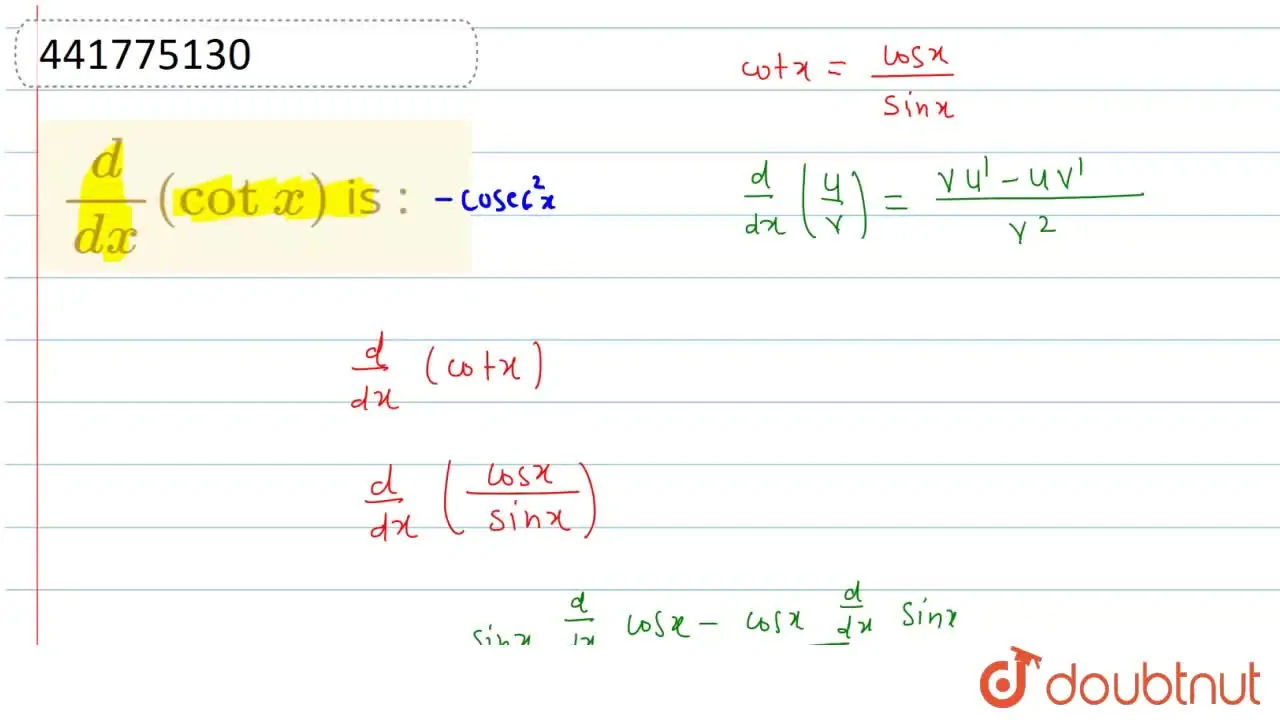 441775130
cot x = cos x / sin x
d/dx (cot x) is : - cosec²x
d/dx (u/v) = (v u' - u v') / v²
d/dx (cot x)
d/dx (cos x / sin x)
sin x d/dx cos x - cos x d/dx sin x
doubtnut